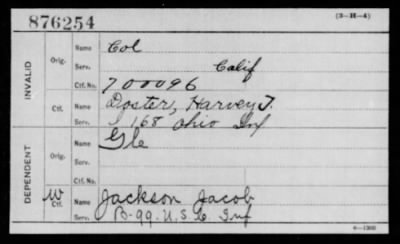 876254 (3-H-4)
INVALID
Orig. Name Col
Serv. Calif
Ctf. No. 700096
Ctf. Name Doster, Harvey T.
Serv. I 168 Ohio Inf
DEPENDENT
Orig. Name Gle
Serv.
Ctf. No.
W Ctf. Name Jackson Jacob
Serv. B-99. U.S. C Inf
6-1300